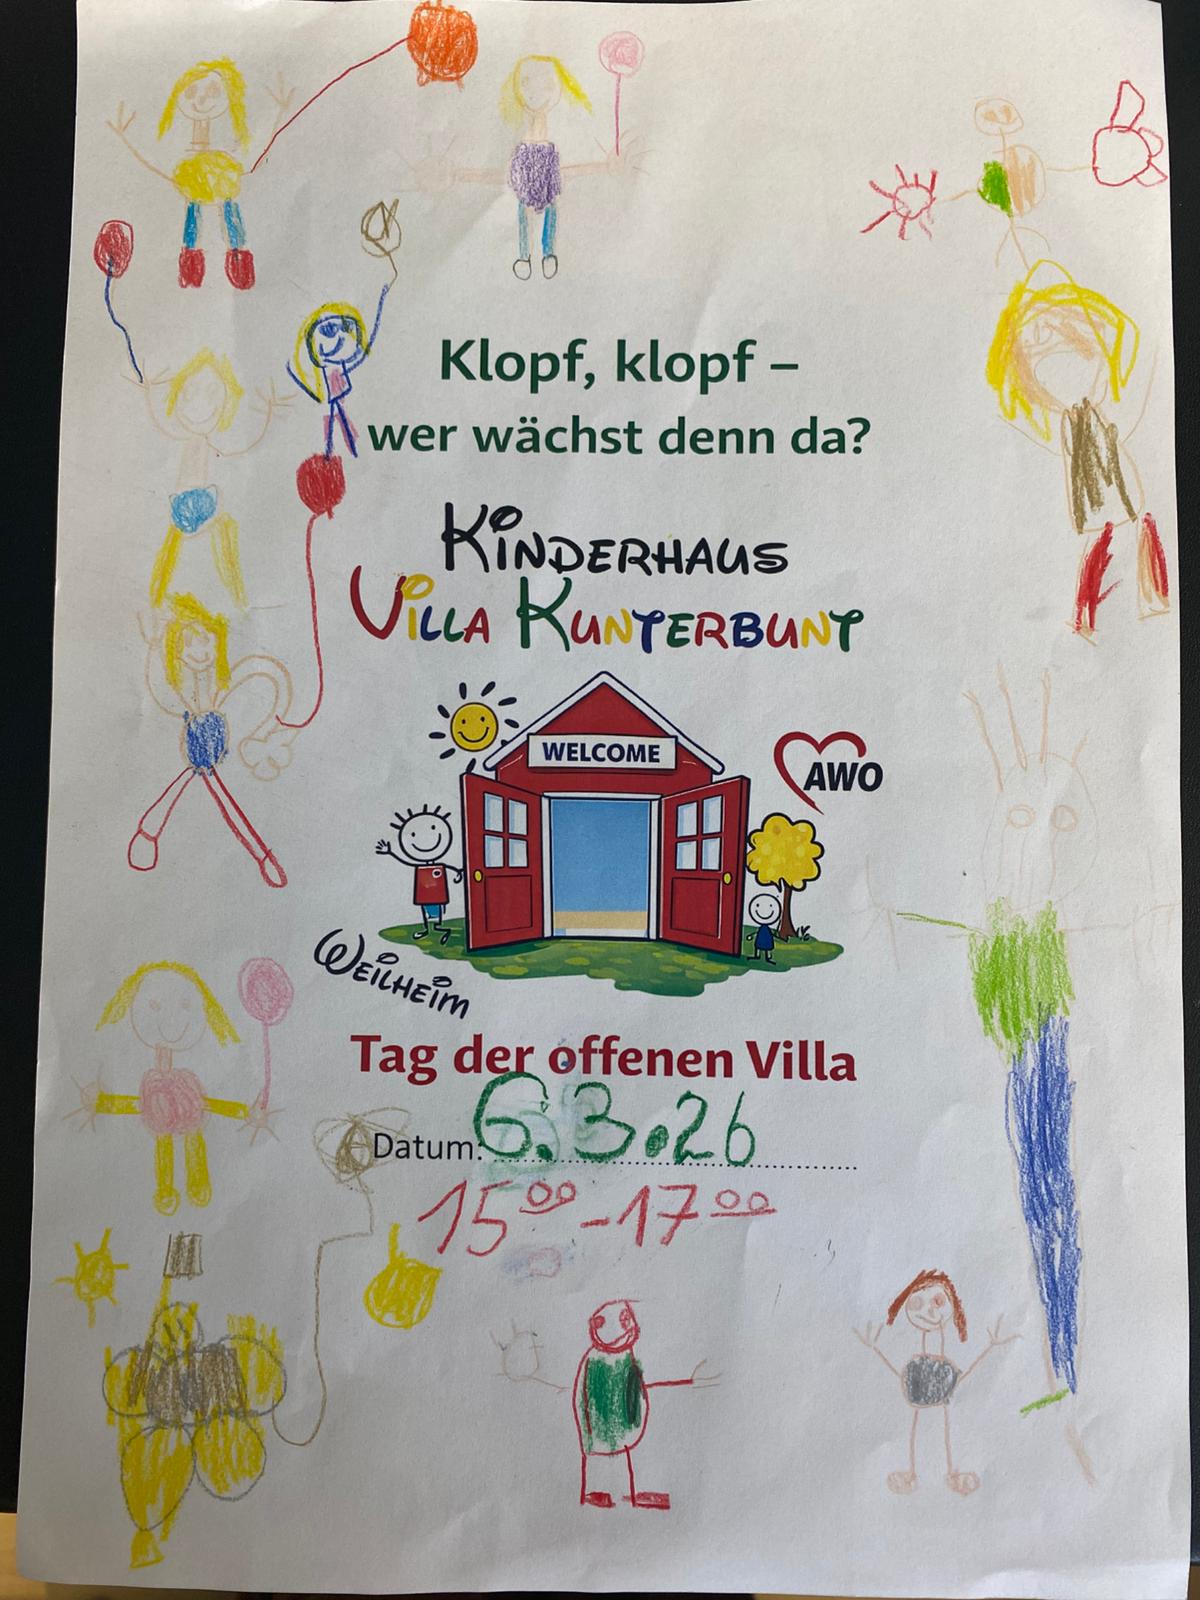 Klopf, klopf –
wer wächst denn da?
KINDERHAUS
VILLA KUNTERBUNT
WELCOME
AWO
WEILHEIM
Tag der offenen Villa
Datum: 6.3.26
15⁰⁰ - 17⁰⁰